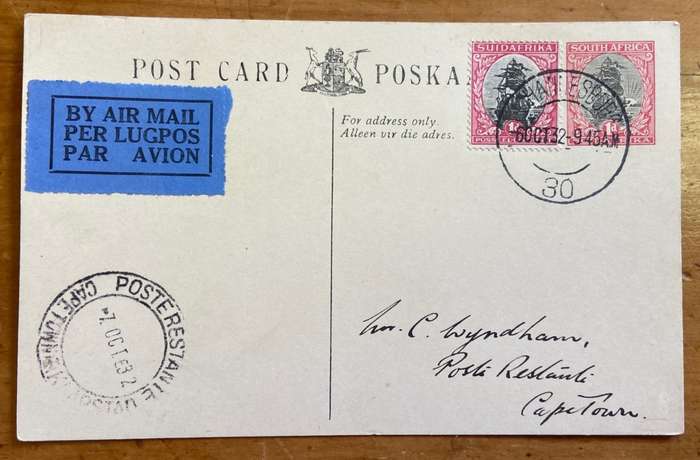 POST CARD POSKA
BY AIR MAIL
PER LUGPOS
PAR AVION
SUIDAFRIKA
1D
SOUTH AFRICA
1D
6 OCT 32-9.45AM
30
For address only.
Alleen vir die adres.
POSTE RESTANTE
CAPETOWN
7. OCT 32
C. Wyndham,
Poste Restante
Cape Town.